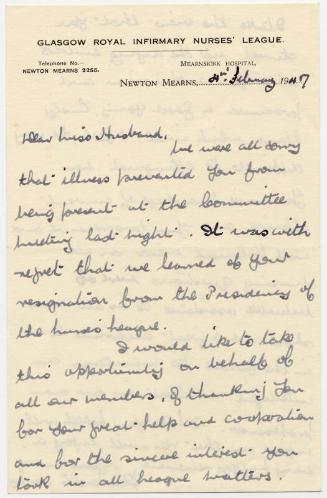 GLASGOW ROYAL INFIRMARY NURSES' LEAGUE.
Telephone No.—
NEWTON MEARNS 2255.
MEARNSKIRK HOSPITAL,
NEWTON MEARNS, 4th February 1947
Dear Miss Husband,
We were all sorry
that illness prevented you from
being present at the Committee
Meeting last night. It was with
regret that we learned of your
resignation from the Presidency of
the Nurses League.
I would like to take
this opportunity on behalf of
all our members, of thanking you
for your great help and cooperation
and for the sincere interest you
took in all league matters.